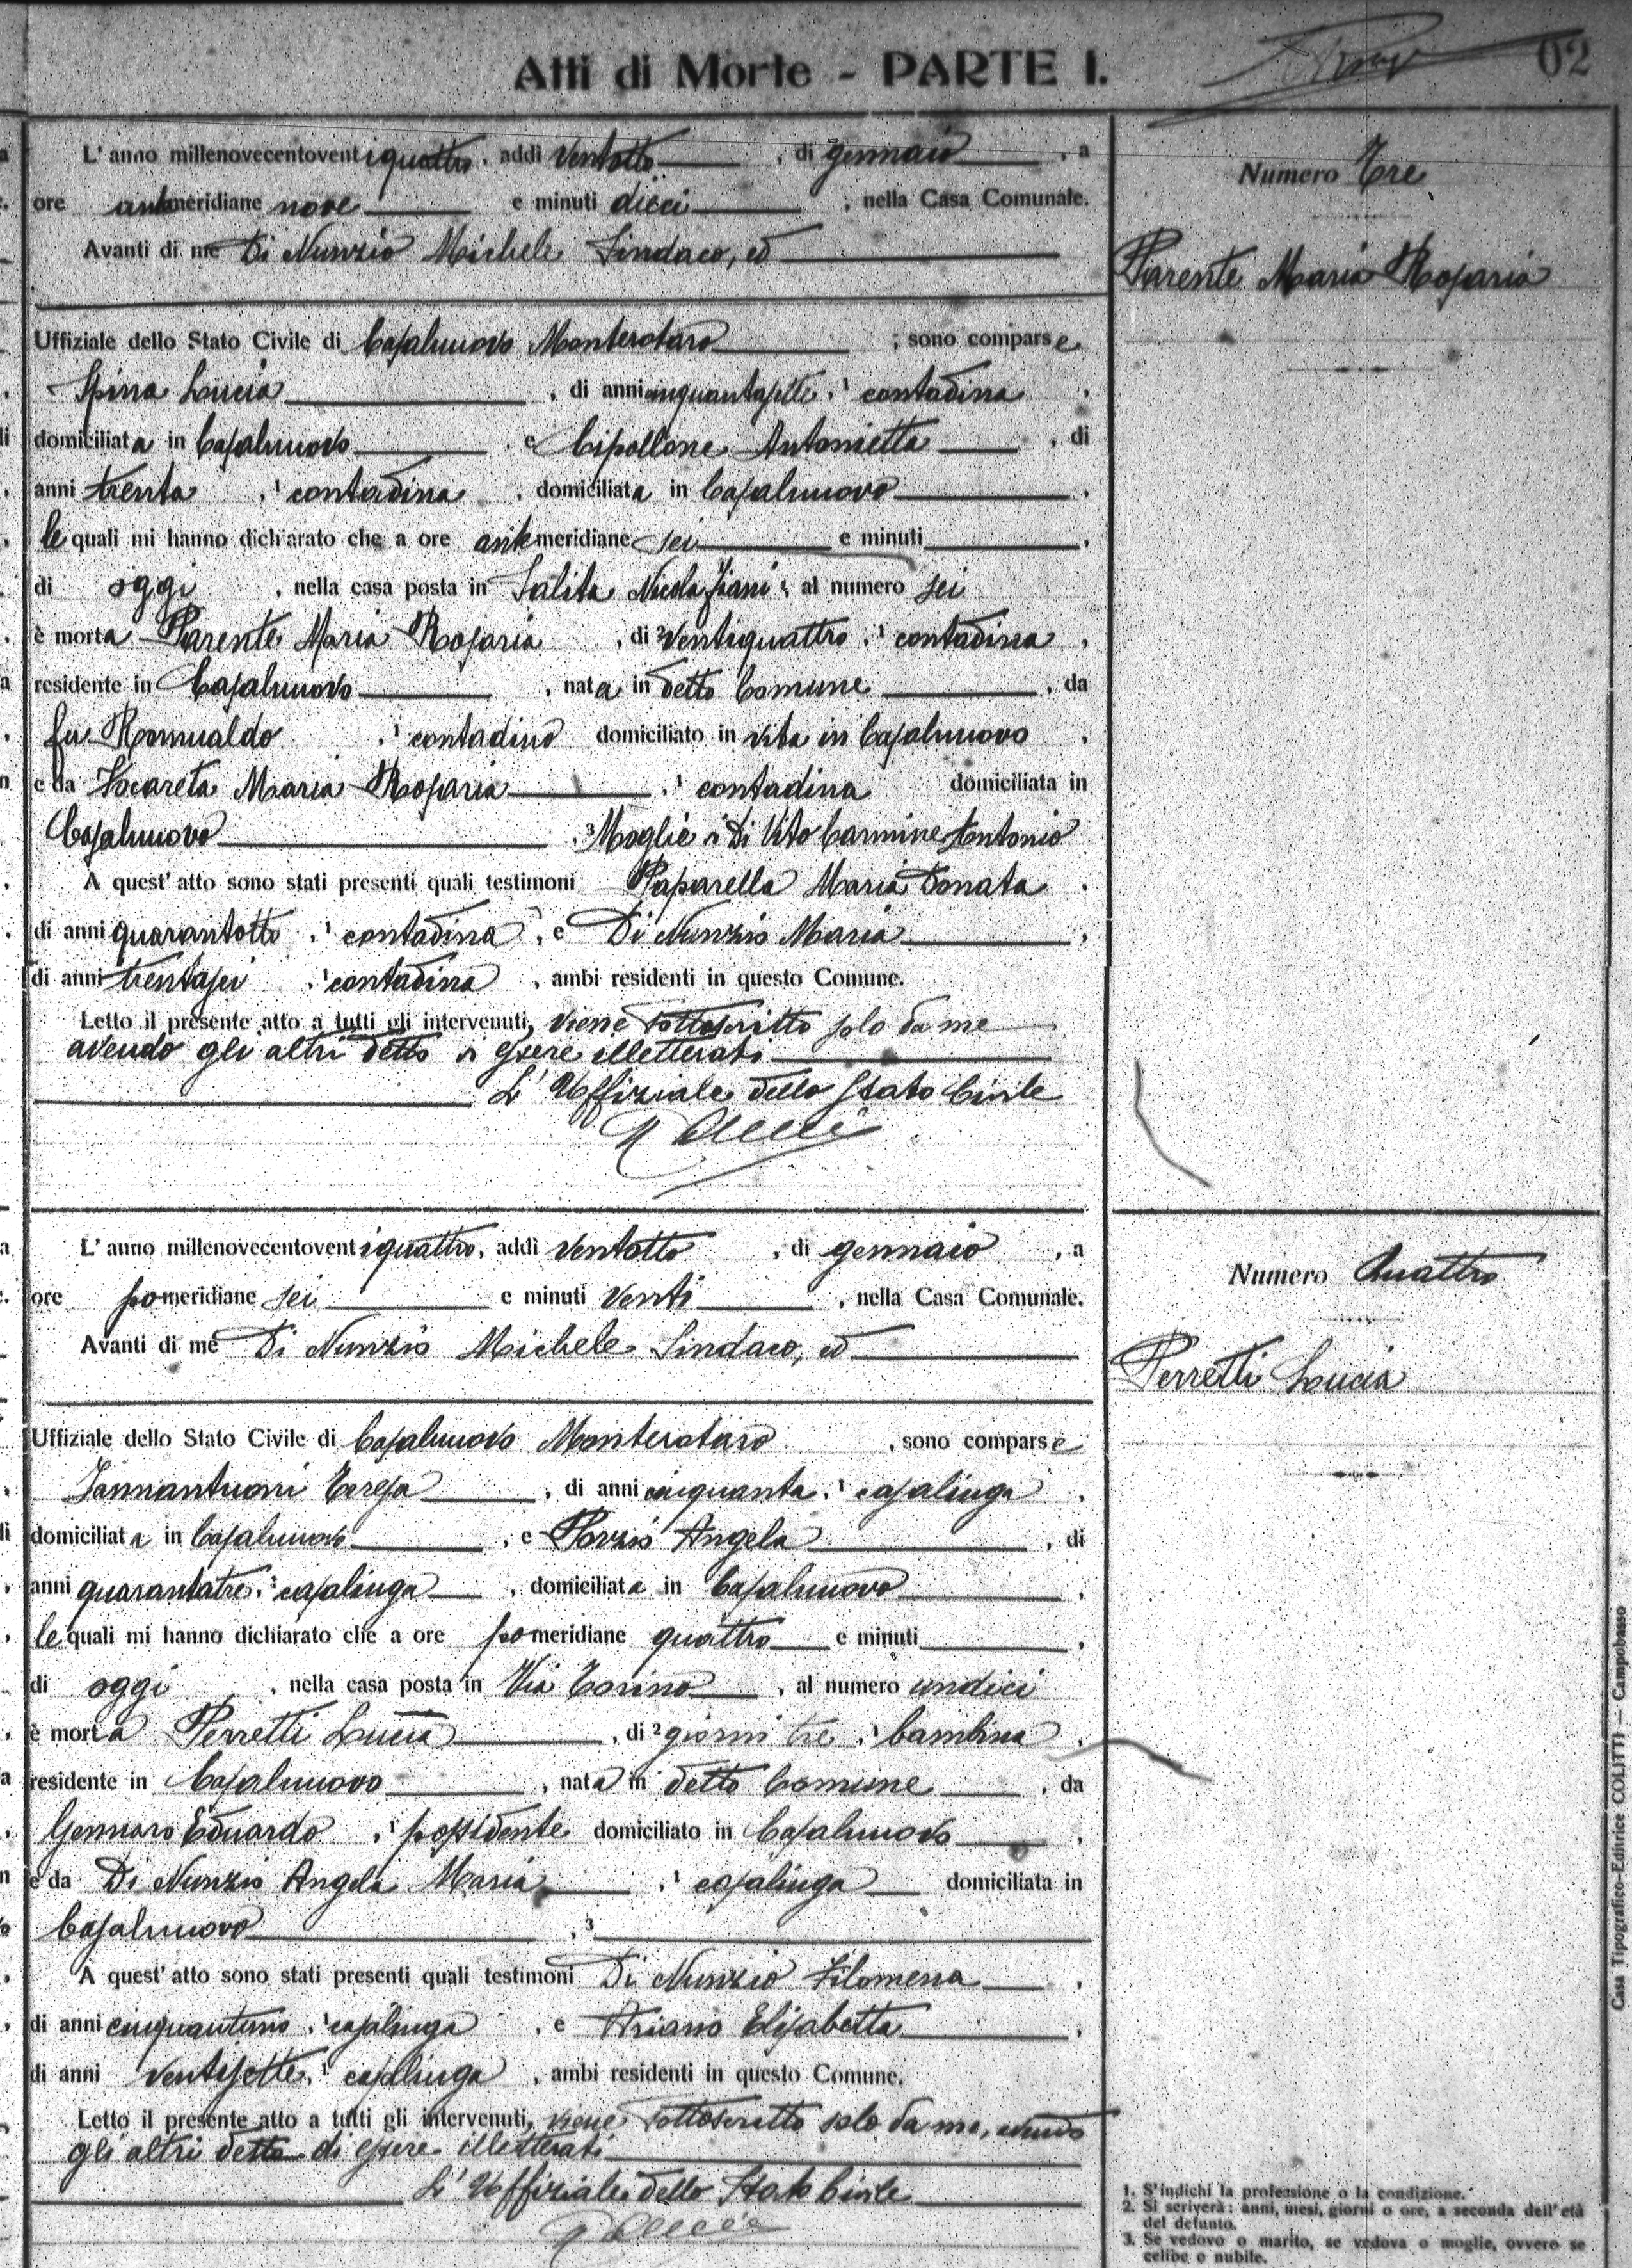 Atti di Morte - PARTE I.
02
L'anno millenovecentoventiquattro, addì ventotto, di gennaio, a
ore antimeridiane nove e minuti dieci, nella Casa Comunale.
Avanti di me Di Nunzio Michele Sindaco, ed
Uffiziale dello Stato Civile di Casalnuovo Monterotaro, sono comparse
Spina Lucia, di anni cinquantasette, 1 contadina,
domiciliata in Casalnuovo, e Cipollone Antonietta, di
anni trenta, 1 contadina, domiciliata in Casalnuovo,
le quali mi hanno dichiarato che a ore antemeridiane sei e minuti,
di oggi, nella casa posta in Salita Nicola, al numero sei
è morta Parente Maria Rosaria, di 2 ventiquattro, 1 contadina,
residente in Casalnuovo, nata in detto Comune, da
fu Romualdo, 1 contadino domiciliato in vita in Casalnuovo,
e da Maria Rosaria, 1 contadina domiciliata in
Casalnuovo, 3 Moglie di Di Vito Carmine Antonio
A quest'atto sono stati presenti quali testimoni Paparella Maria Donata,
di anni quarantotto, 1 contadina, e Di Nunzio Maria,
di anni trentasei, 1 contadina, ambi residenti in questo Comune.
Letto il presente atto a tutti gli intervenuti, viene sottoscritto solo da me
avendo gli altri detto di essere illetterati
L'Uffiziale dello Stato Civile
Numero Tre
Parente Maria Rosaria
L'anno millenovecentoventiquattro, addì ventotto, di gennaio, a
ore pomeridiane sei e minuti venti, nella Casa Comunale.
Avanti di me Di Nunzio Michele Sindaco, ed
Uffiziale dello Stato Civile di Casalnuovo Monterotaro, sono comparse
Iannantuoni Teresa, di anni cinquanta, 1 casalinga,
domiciliata in Casalnuovo, e Porzio Angela, di
anni quarantatre, 1 casalinga, domiciliata in Casalnuovo,
le quali mi hanno dichiarato che a ore pomeridiane quattro e minuti,
di oggi, nella casa posta in Via Torino, al numero undici
è morta Perretti Lucia, di 2 giorni tre, 1 bambina,
residente in Casalnuovo, nata in detto Comune, da
Gennaro Eduardo, 1 possidente domiciliato in Casalnuovo,
e da Di Nunzio Angela Maria, 1 casalinga domiciliata in
Casalnuovo, 3
A quest'atto sono stati presenti quali testimoni Di Nunzio Filomena,
di anni cinquantuno, 1 casalinga, e Ariano Elisabetta,
di anni ventisette, 1 casalinga, ambi residenti in questo Comune.
Letto il presente atto a tutti gli intervenuti, viene sottoscritto solo da me, avendo
gli altri detto di essere illetterati
L'Uffiziale dello Stato Civile
Numero Quattro
Perretti Lucia
1. S'indichi la professione o la condizione.
2. Si scriverà: anni, mesi, giorni o ore, a seconda dell'età
del defunto.
3. Se vedovo o marito, se vedova o moglie, ovvero se
celibe o nubile.
Casa Tipografico-Editrice COLITTI — Campobasso